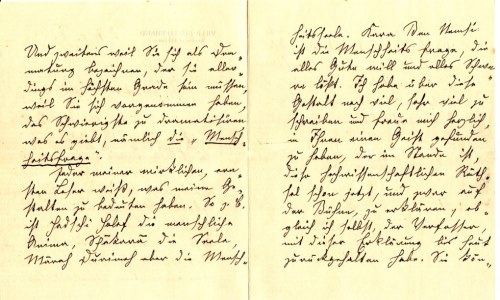 Und zweitens weil Sie sich als Dra-
maturg bezeichnen, der sie aller-
dings im höchsten Grade sein müssen,
weil Sie sich vorgenommen haben,
das Schwierigste zu dramatisiren
was es giebt, nämlich die „Mensch-
heitsfrage".
Jeder meiner wirklichen, ern-
sten Leser weiß, was meine Ge-
stalten zu bedeuten haben. So z. B.
ist Hadschi Halef die menschliche
Anima, Schakara die Seele,
Marah Durimeh aber die Mensch-
heitsseele. Kara Ben Nemsi
ist die Menschheitsfrage, die
alles Gute will und alles Schwe-
re löst. Ich habe über diese
Gestalt noch viel, sehr viel zu
schreiben und freue mich herzlich,
in Ihnen einen Geist gefunden
zu haben, der im Stande ist,
diese hochwissenschaftlichen Räth-
sel schon jetzt, und zwar auf
der Bühne, zu erklären, ob-
gleich ich selbst, der Verfasser,
mit dieser Erklärung bis heut
zurückgehalten habe. Sie kön-